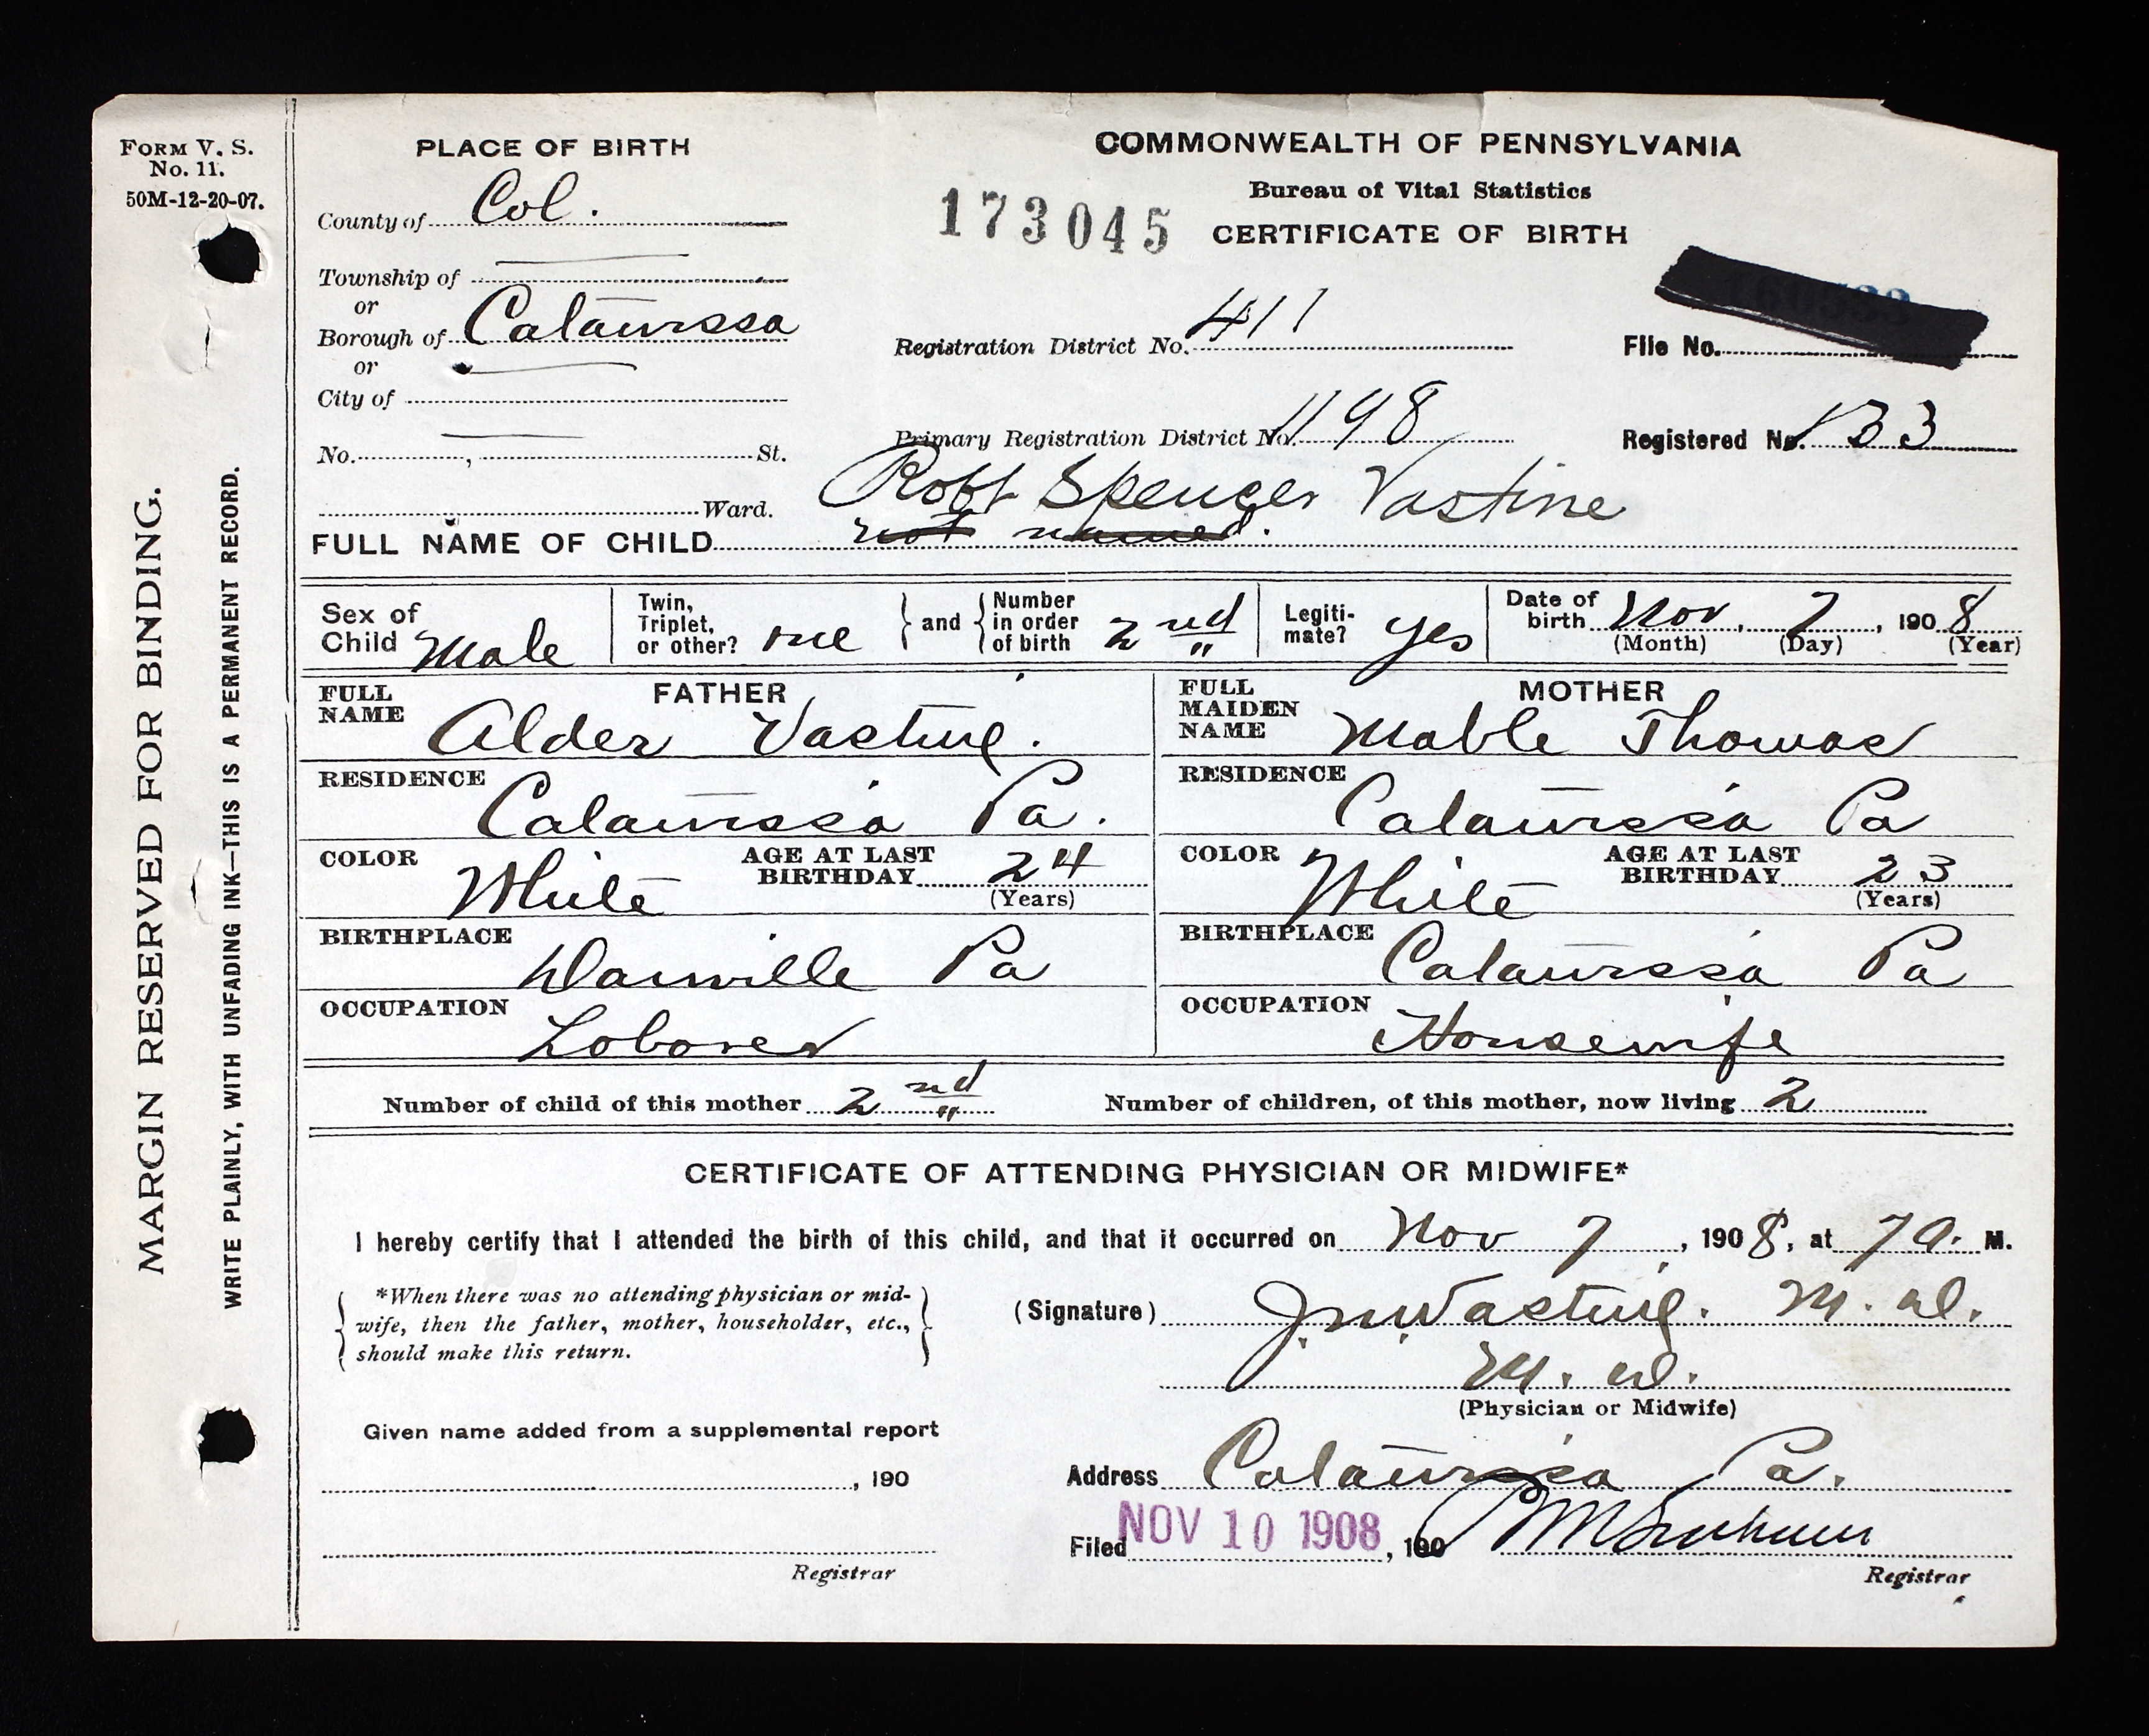 FORM V. S.
No. 11.
50M-12-20-07.
MARGIN RESERVED FOR BINDING.
WRITE PLAINLY, WITH UNFADING INK—THIS IS A PERMANENT RECORD.
PLACE OF BIRTH
County of Col.
Township of
or
Borough of Catawissa
or
City of
No. , St.
Ward.
COMMONWEALTH OF PENNSYLVANIA
Bureau of Vital Statistics
173045 CERTIFICATE OF BIRTH
Registration District No. 411
File No.
Primary Registration District No. 1198
Registered No. 133
Robt Spencer Vastine
FULL NAME OF CHILD not named.
Sex of Child Male
Twin, Triplet, or other? one
and Number in order of birth 2nd "
Legiti-mate? yes
Date of birth Nov. 7, 1908
(Month) (Day) (Year)
FATHER
FULL NAME Alder Vastine.
RESIDENCE Catawissa Pa.
COLOR White AGE AT LAST BIRTHDAY 24
(Years)
BIRTHPLACE Danville Pa
OCCUPATION Laborer
MOTHER
FULL MAIDEN NAME Mable Thomas
RESIDENCE Catawissa Pa
COLOR White AGE AT LAST BIRTHDAY 23
(Years)
BIRTHPLACE Catawissa Pa
OCCUPATION Housewife
Number of child of this mother 2nd " Number of children, of this mother, now living 2
CERTIFICATE OF ATTENDING PHYSICIAN OR MIDWIFE*
I hereby certify that I attended the birth of this child, and that it occurred on Nov 7, 1908, at 7 a. M.
*When there was no attending physician or mid-
wife, then the father, mother, householder, etc.,
should make this return.
(Signature) Vastine. M. D.
M. D.
(Physician or Midwife)
Given name added from a supplemental report
, 190
Registrar
Address Catawissa Pa.
Filed NOV 10 1908, 190
Registrar